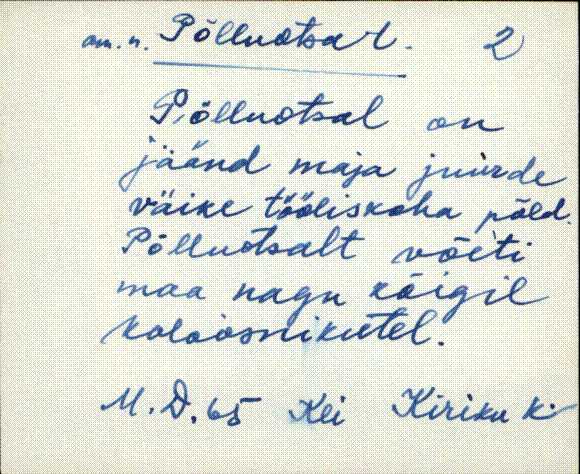 om. n. Põlluotsal. 2
Põlluotsal on
jäänd maja juurde
väike tööliskoha põld.
Põlluotsalt võeti
maa nagu kõigil
koloosnikutel.
M. D. 65 Kei Kiriku k.